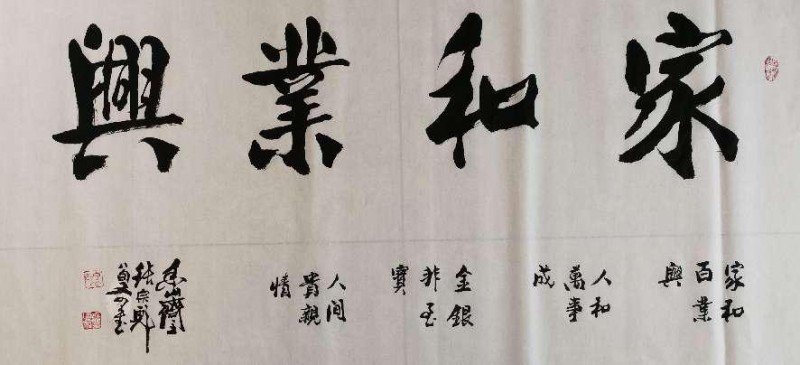 家和業興
家和
百業
興
人和
萬事
成
金銀
非至
寶
人間
貴親
情